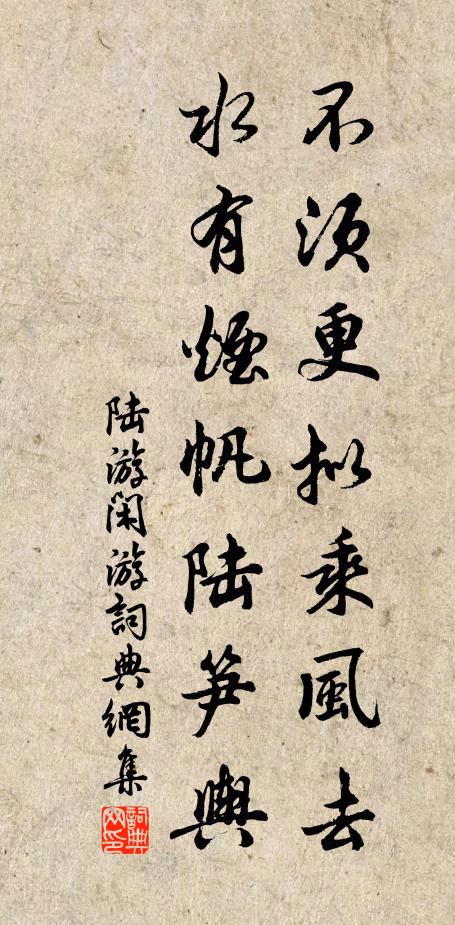 不須更拟乘風去
水有煙帆陸笋輿
陆游閑游詞典網集
詞典网印